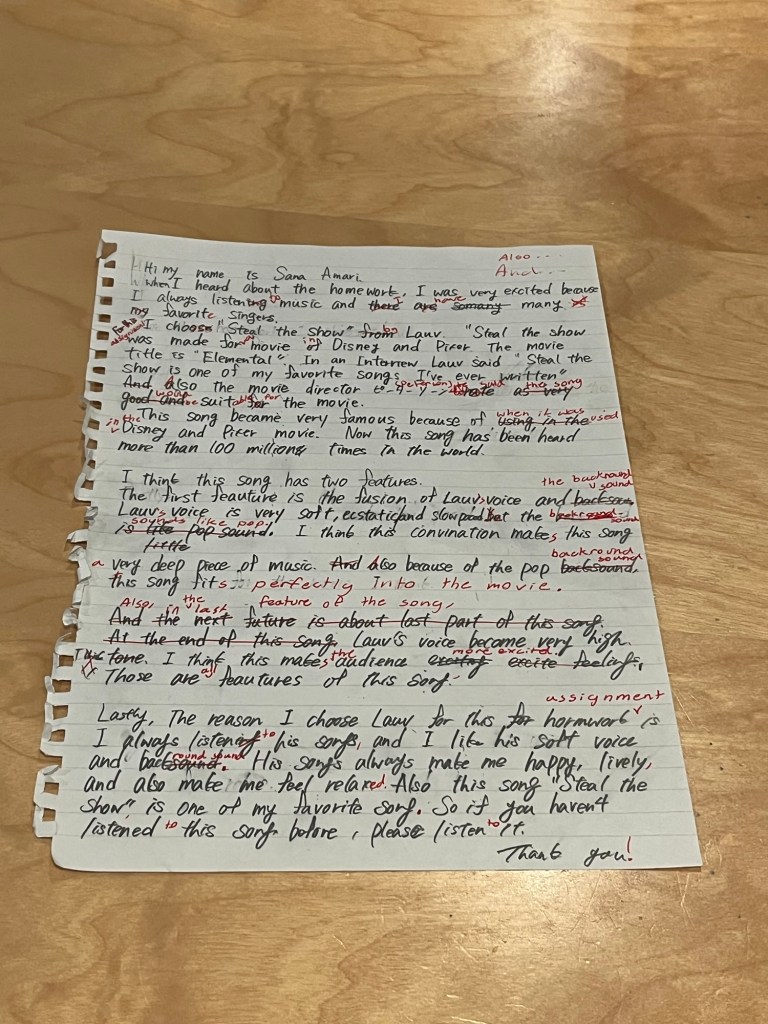 Also...
And...
Hi my name is Sana Amari.
When I heard about the homework, I was very excited because
I always listening to music and there I are have somany many
my favorite singers.
For this assignment I choose "Steal the show" from by Lauv. "Steal the show
was made for movie in of Disney and Pixer. The movie
title is "Elemental". In an Interview Lauv said "Steal the
show is one of my favorite songs I've ever written"
And Also the movie director (person) said this song as very
good and suitable for for the movie.
This song became very famous because of when it was using in the used
in the Disney and Pixer movie. Now this song has been heard
more than 100 millions times in the world.
I think this song has two features.
The first feauture is the fusion of Lauv's voice and the backround sound
Lauv's voice is very soft, ecstatic and slow paced but the backround sound
is like sounds like pop pop sound. I think this convination makes this song
little
a very deep piece of music. And Also because of the pop backround sound backsound,
this song fits perfectly into the movie.
Also, in the last feature of the song,
And the next future is about last part of this song.
At the end of this song, Lauv's voice become very high.
This tone. I think this makes the audience exciting more excited excite feelings.
Those are all feautures of this song.
Lastly, The reason I choose Lauv for this for homework assignment is
I always listening to his songs, and I like his soft voice
and backround sound. His songs always make me happy, lively,
and also make me feel relaxed. Also this song "Steal the
Show" is one of my favorite song. So if you haven't
listened to this song before, please listen to it.
Thank you!